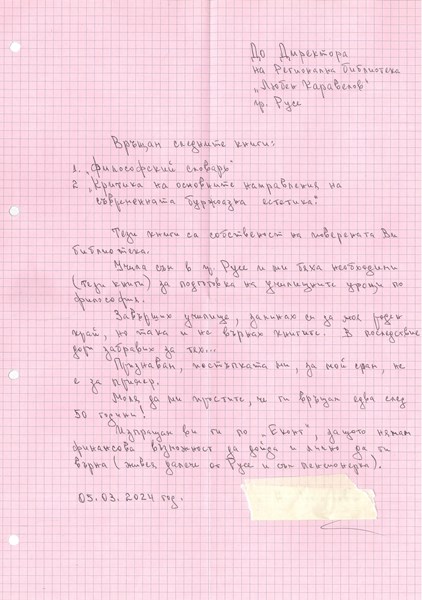 До Директора
на Регионална библиотека
„Любен Каравелов"
гр. Русе
Връщам следните книги:
1. „Философский словарь"
2. „Критика на основните направления на
съвременната буржоазна естетика."
Тези книги са собственост на поверената Ви
библиотека.
Учила съм в гр. Русе и ми бяха необходими
(тези книги) за подготовка на училищните уроци по
философия.
Завърших училище, заминах си за моя роден
край, но така и не върнах книгите. В последствие
дори забравих за тях...
Признавам, постъпката ми, за мой срам, не
е за пример.
Моля да ми простите, че ги връщам едва след
50 години!
Изпращам ви ги по „Еконт", защото нямам
финансова възможност да дойда и лично да ги
върна (живея далече от Русе и съм пенсионерка).
05.03.2024 год.